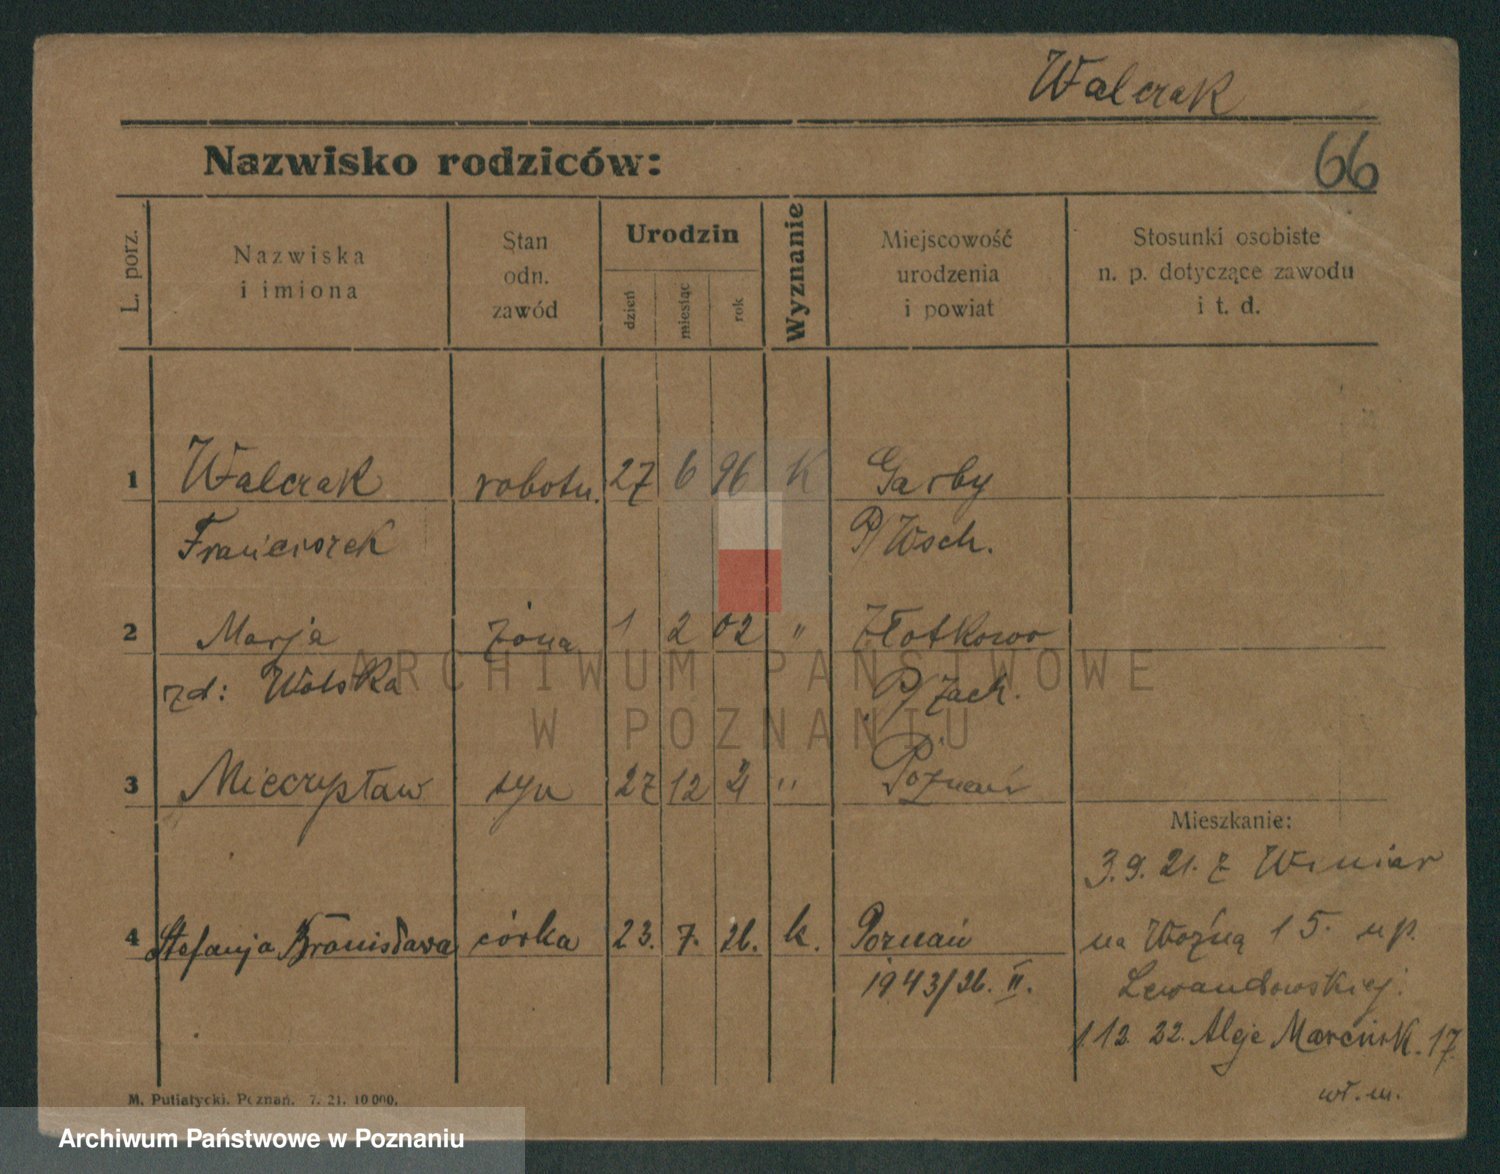 Walczak
Nazwisko rodziców:
66
L. porz.
Nazwiska
i imiona
Stan
odn.
zawód
Urodzin
dzień
miesiąc
rok
Wyznanie
Miejscowość
urodzenia
i powiat
Stosunki osobiste
n. p. dotyczące zawodu
i t. d.
1 Walczak robotn. 27 6 96 K Garby
Franciszek P/Wsch.
2 Marja żona 1 2 02 " Złotkowo
zd: Wolska P/Zach.
3 Mieczysław syn 27 12 21 " Poznań
Mieszkanie:
3.9.21. z Winiar
4 Stefanja Bronisława córka 23. 7. 26. k. Poznań
na Woźną 15. u p.
1943/26. II.
Lewandowskiej.
1.12. 22. Aleje Marcink. 17.
wł. m.
M. Putiatycki. Poznań. 7. 21. 10 000.
ARCHIWUM PAŃSTWOWE
W POZNANIU
Archiwum Państwowe w Poznaniu